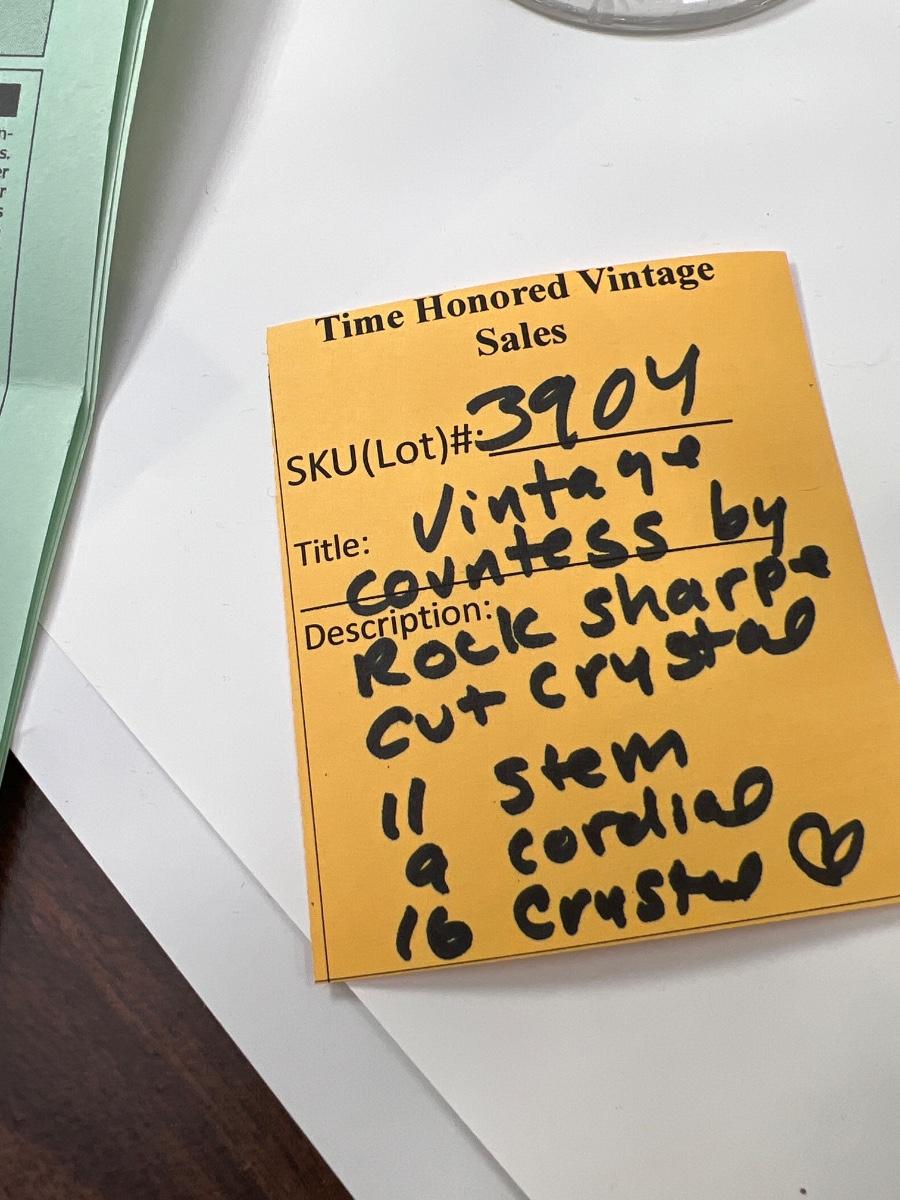 n-
s.
er
r
s
Time Honored Vintage
Sales
SKU(Lot)#: 3904
Title: Vintage
countess by
Description:
Rock sharpe
cut crystal
11 stem
9 cordial
16 Crystal